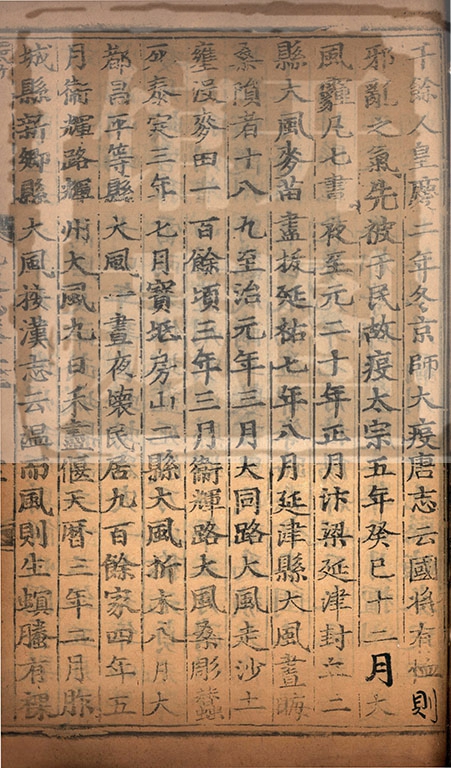 十餘人皇慶二年冬京師大疫唐志云國將有恤則
邪亂之氣先被于民故疫太宗五年癸巳十二月大
風霾凡七晝夜至元二十年正月汴梁延津封丘二
縣大風麥苗盡拔延祐七年八月延津縣大風晝晦
桑隕者十八九至治元年三月大同路大風走沙土
壅沒麥田一百餘頃三年三月衞輝路大風桑彫蠶
死泰定三年七月寶坻房山二縣大風折木八月大
都昌平等縣大風一晝夜壞民居九百餘家四年五
月衞輝路輝州大風九日禾盡偃天曆三年二月胙
城縣新鄉縣大風按漢志云温而風則生螟螣有裸